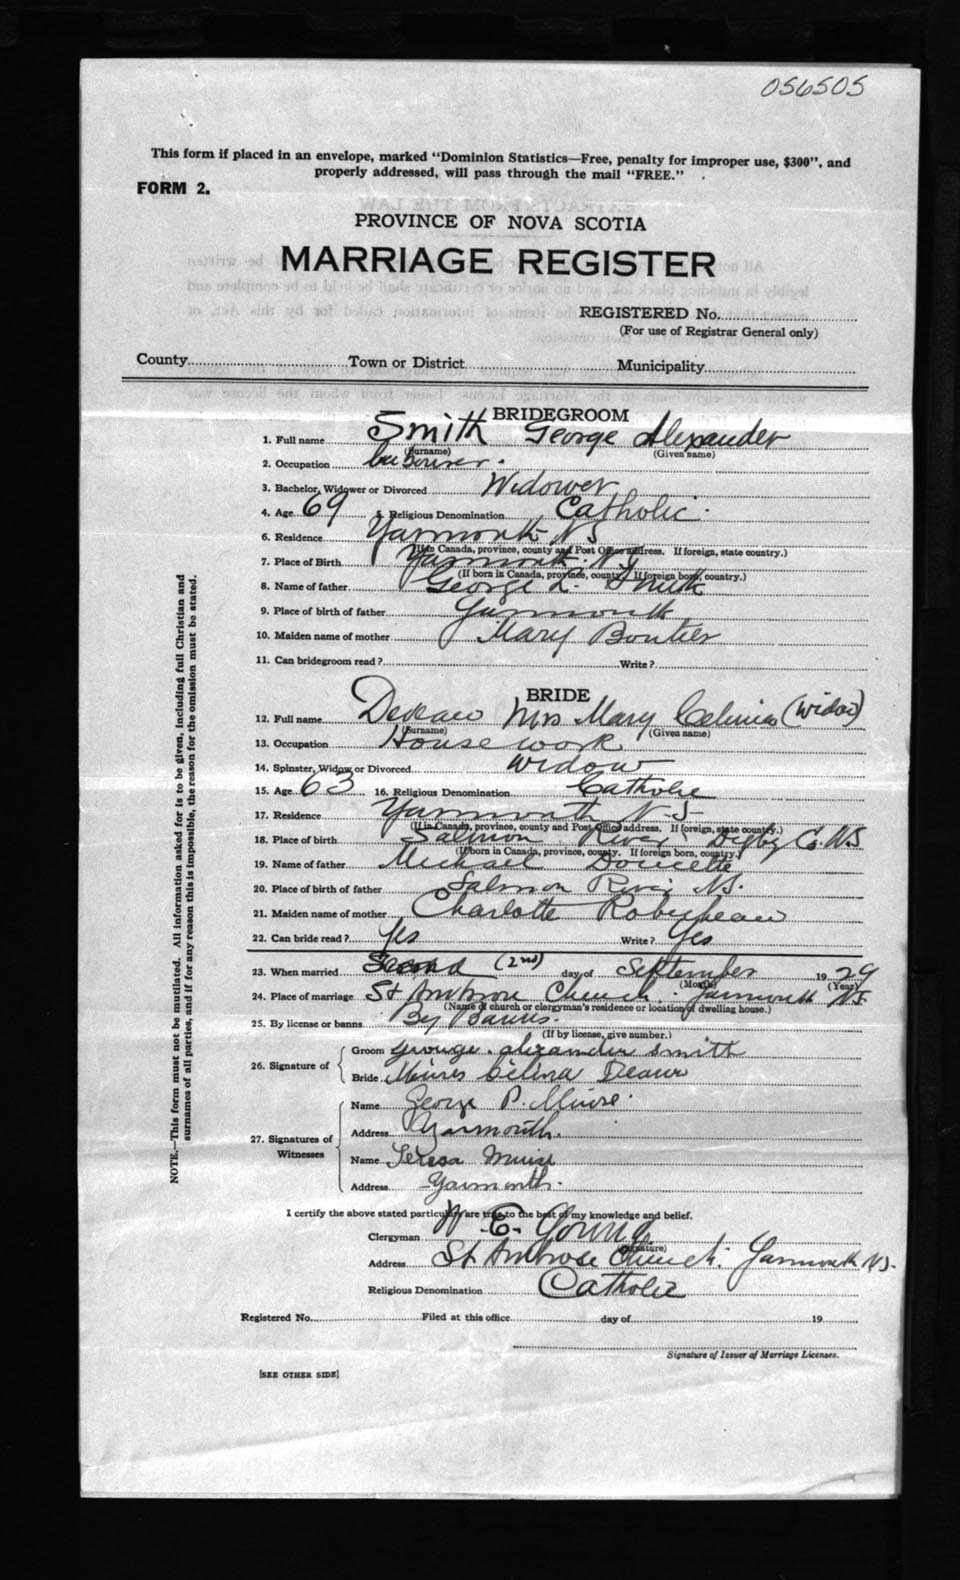 056505
This form if placed in an envelope, marked "Dominion Statistics—Free, penalty for improper use, $300", and
properly addressed, will pass through the mail "FREE."
FORM 2.
PROVINCE OF NOVA SCOTIA
MARRIAGE REGISTER
REGISTERED No.
(For use of Registrar General only)
County Town or District Municipality
BRIDEGROOM
1. Full name Smith George Alexander
(Surname) (Given name)
2. Occupation
3. Bachelor, Widower or Divorced Widower
4. Age 69 5. Religious Denomination Catholic
6. Residence Yarmouth N S
(If in Canada, province, county and Post Office address. If foreign, state country.)
7. Place of Birth Yarmouth N.S
(If born in Canada, province, county. If foreign born, country.)
8. Name of father George L. Smith
9. Place of birth of father Yarmouth
10. Maiden name of mother Mary
11. Can bridegroom read? Write?
BRIDE
12. Full name Deveau Mrs Mary Celinia (widow)
(Surname) (Given name)
13. Occupation House work
14. Spinster, Widow or Divorced widow
15. Age 63 16. Religious Denomination Catholic
17. Residence Yarmouth N-S-
(If in Canada, province, county and Post Office address. If foreign, state country.)
18. Place of birth Salmon River Digby Co. N.S
(If born in Canada, province, county. If foreign born, country.)
19. Name of father Michael Doucette
20. Place of birth of father Salmon River N.S.
21. Maiden name of mother Charlotte Robicheau
22. Can bride read? Yes Write? Yes
23. When married Second (2nd) day of September 1929
(Month) (Year)
24. Place of marriage St Ambrose Church. Yarmouth N.S.
(Name of church or clergyman's residence or location of dwelling house.)
25. By license or banns By Banns.
(If by license, give number.)
26. Signature of
Groom George. Alexander Smith
Bride Celina
27. Signatures of Witnesses
Name George P. Muise.
Address Yarmouth.
Name Teresa Muise
Address Yarmouth.
I certify the above stated particulars are true to the best of my knowledge and belief.
Clergyman W E. Young
(Signature)
Address St Ambrose Church. Yarmouth N.S.
Religious Denomination Catholic
Registered No. Filed at this office day of 19
Signature of Issuer of Marriage Licenses.
[SEE OTHER SIDE]
NOTE.—This form must not be mutilated. All information asked for is to be given, including full Christian and
surnames of all parties, and if for any reason this is impossible, the reason for the omission must be stated.